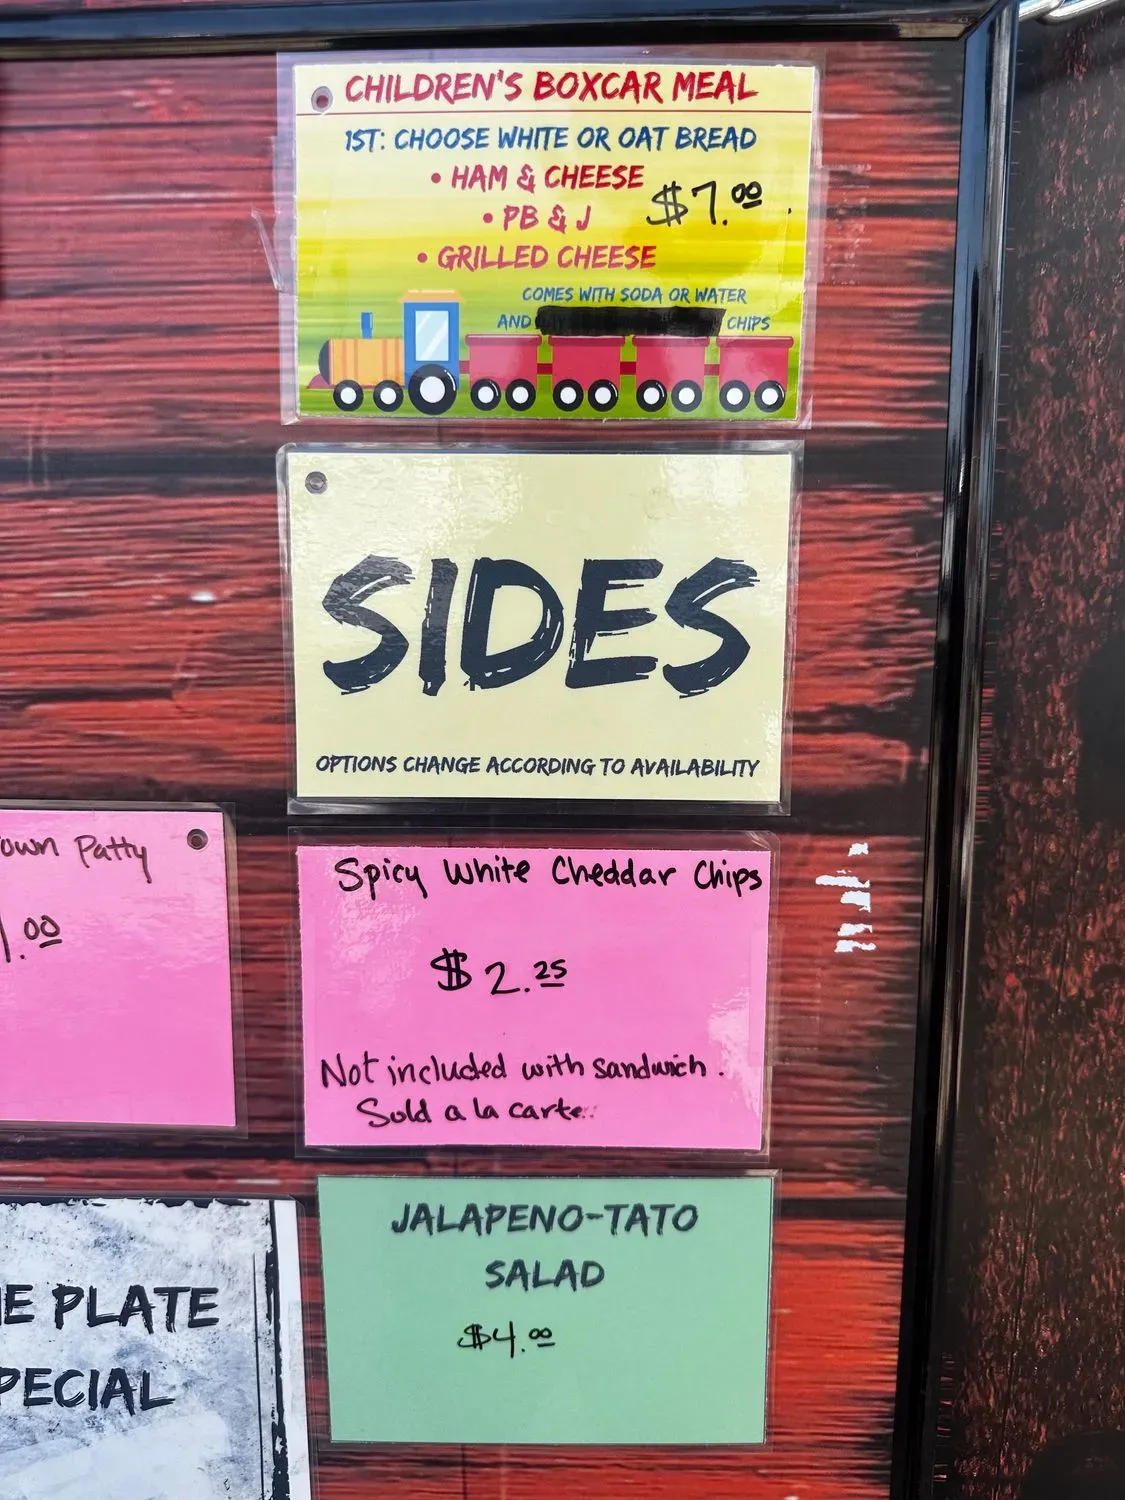 CHILDREN'S BOXCAR MEAL
1ST: CHOOSE WHITE OR OAT BREAD
• HAM & CHEESE
$7.00
• PB & J
• GRILLED CHEESE
COMES WITH SODA OR WATER
AND CHIPS
SIDES
OPTIONS CHANGE ACCORDING TO AVAILABILITY
own Patty
.00
Spicy White Cheddar Chips
$2.25
Not included with sandwich.
Sold a la carte.
JALAPENO-TATO
SALAD
$4.00
E PLATE
PECIAL